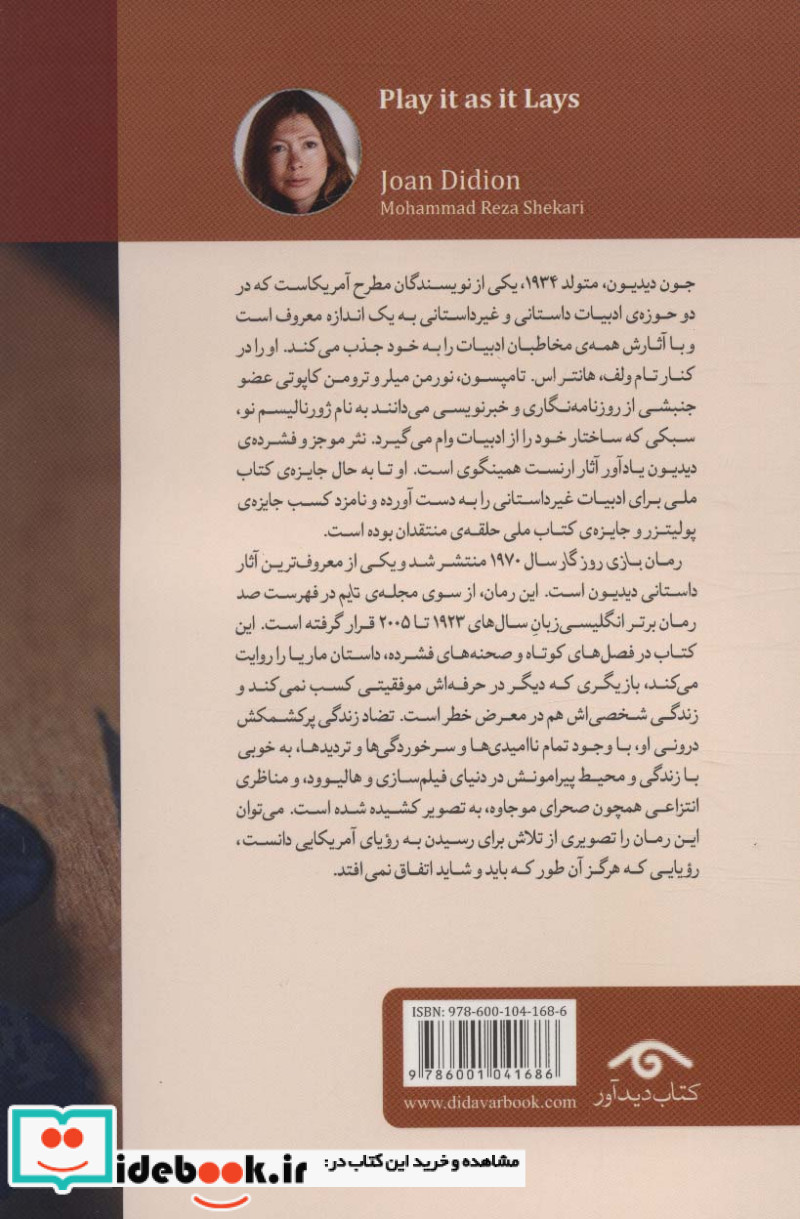 Play it as it Lays
Joan Didion
Mohammad Reza Shekari
جون دیدیون، متولد ۱۹۳۴، یکی از نویسندگان مطرح آمریکاست که در
دو حوزه‌ی ادبیات داستانی و غیرداستانی به یک اندازه معروف است
و با آثارش همه‌ی مخاطبان ادبیات را به خود جذب می‌کند. او را در
کنار تام ولف، هانتر اس. تامپسون، نورمن میلر و ترومن کاپوتی عضو
جنبشی از روزنامه‌نگاری و خبرنویسی می‌دانند به نام ژورنالیسم نو،
سبکی که ساختار خود را از ادبیات وام می‌گیرد. نثر موجز و فشرده‌ی
دیدیون یادآور آثار ارنست همینگوی است. او تا به حال جایزه‌ی کتاب
ملی برای ادبیات غیرداستانی را به دست آورده و نامزد کسب جایزه‌ی
پولیتزر و جایزه‌ی کتاب ملی حلقه‌ی منتقدان بوده است.
رمان بازی روزگار سال ۱۹۷۰ منتشر شد و یکی از معروف‌ترین آثار
داستانی دیدیون است. این رمان، از سوی مجله‌ی تایم در فهرست صد
رمان برتر انگلیسی‌زبانِ سال‌های ۱۹۲۳ تا ۲۰۰۵ قرار گرفته است. این
کتاب در فصل‌های کوتاه و صحنه‌های فشرده، داستان ماریا را روایت
می‌کند، بازیگری که دیگر در حرفه‌اش موفقیتی کسب نمی‌کند و
زندگی شخصی‌اش هم در معرض خطر است. تضاد زندگی پرکشمکش
درونی او، با وجود تمام ناامیدی‌ها و سرخوردگی‌ها و تردیدها، به خوبی
با زندگی و محیط پیرامونش در دنیای فیلم‌سازی و هالیوود، و مناظری
انتزاعی همچون صحرای موجاوه، به تصویر کشیده شده است. می‌توان
این رمان را تصویری از تلاش برای رسیدن به رؤیای آمریکایی دانست،
رؤیایی که هرگز آن طور که باید و شاید اتفاق نمی‌افتد.
ISBN: 978-600-104-168-6
9 786001 041686
www.didavarbook.com
کتاب دیدآور
idebook.ir
مشاهده و خرید این کتاب در: